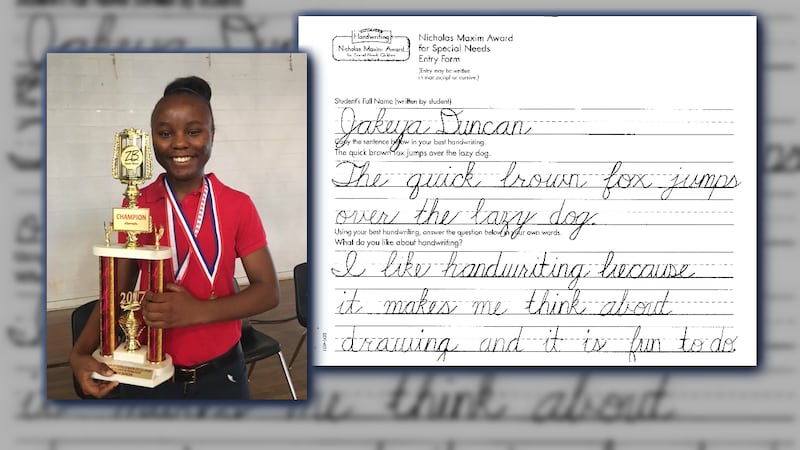 Handwriting
Nicholas Maxim Award
for Special Needs Children
Nicholas Maxim Award
for Special Needs
Entry Form
(Entry may be written
in manuscript or cursive.)
Student's Full Name (written by student)
Jakeya Duncan
Copy the sentence below in your best handwriting.
The quick brown fox jumps over the lazy dog.
The quick brown fox jumps
over the lazy dog.
Using your best handwriting, answer the question below in your own words.
What do you like about handwriting?
I like handwriting because
it makes me think about
drawing and it is fun to do.
ZB
CHAMPION
2017
Jakeya Dun
me think about